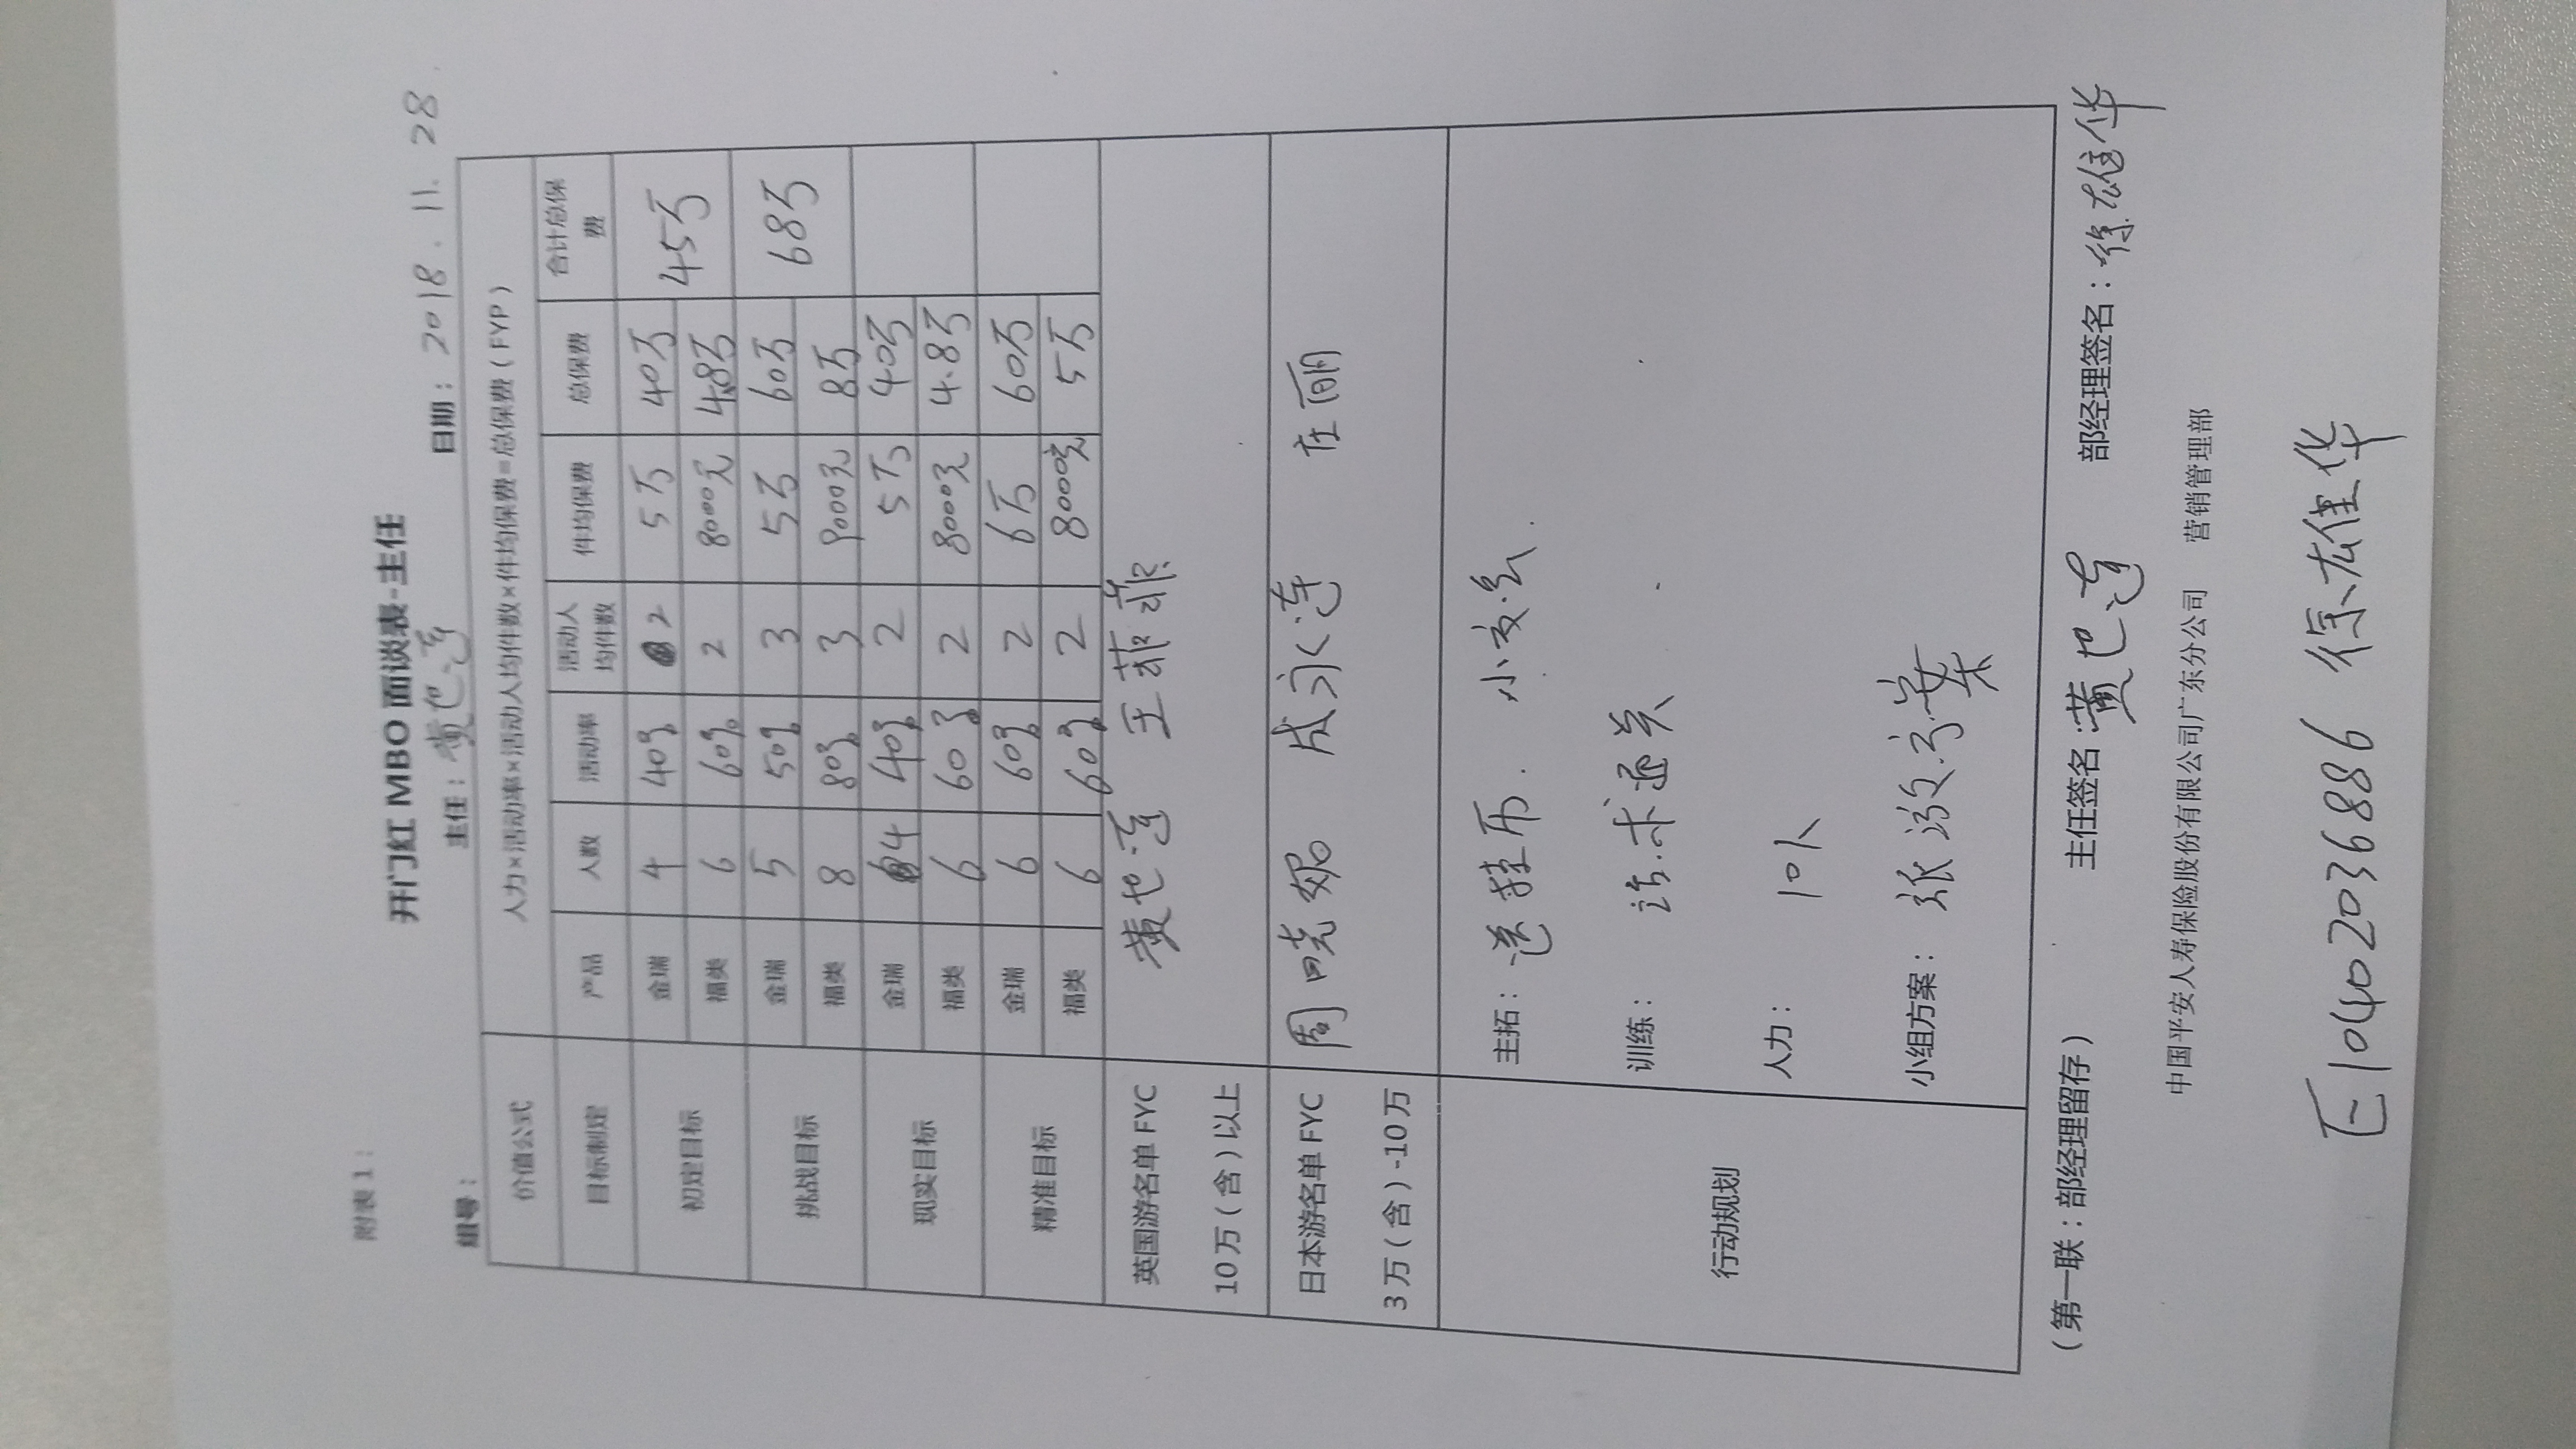 附表 1：
开门红 MBO 面谈表-主任
组号： 主任：黄也莲 日期：2018.11.28
价值公式 人力×活动率×活动人均件数×件均保费=总保费（FYP）
目标制定 产品 人数 活动率 活动人均件数 件均保费 总保费 合计总保费
初定目标 金瑞 4 40% 2 5万 40万 45万
福类 6 60% 2 8000元 4.8万
挑战目标 金瑞 5 50% 3 5万 60万 68万
福类 8 80% 3 8000元 8万
现实目标 金瑞 4 40% 2 5万 40万
福类 6 60% 2 8000元 4.8万
精准目标 金瑞 6 60% 2 6万 60万
福类 6 60% 2 8000元 5万
英国游名单 FYC 黄也莲 王菲菲
10万（含）以上
日本游名单 FYC 周晓娜 成永连 庄丽
3万（含）-10万
行动规划
主拓：送挂历. 小交会.
训练： 话术通关
人力： 10人
小组方案：
（第一联：部经理留存） 主任签名：黄也莲 部经理签名：徐雄华
中国平安人寿保险股份有限公司广东分公司 营销管理部
区10402036886 徐雄华